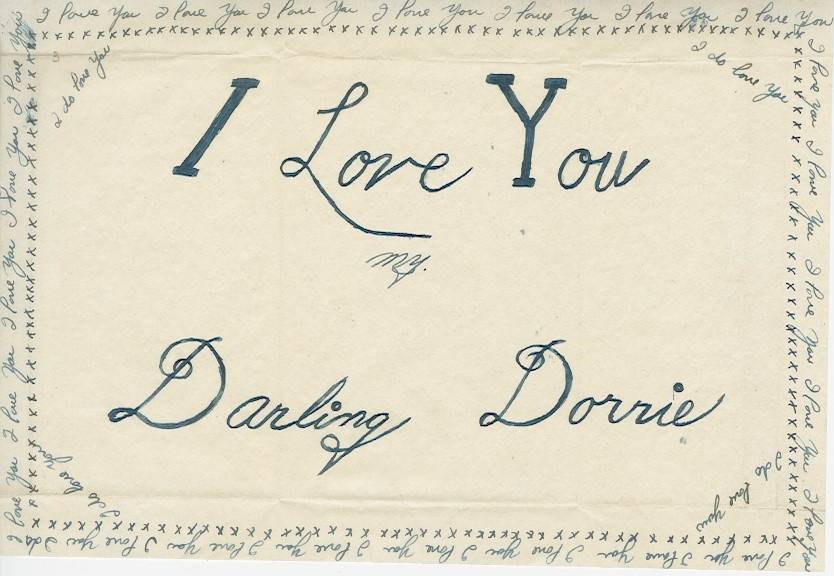 I Love You I Love You I Love You I Love You I Love You I Love You I Love You
xxxxxxxxxxxxxxxxxxxxxxxxxxxxxxxxxxxxxxxxxxxxxxxxxxxxxxxxxxxx
I do love You
I do love You
I Love You
my
Darling Dorrie
I do love You
I do love You
xxxxxxxxxxxxxxxxxxxxxxxxxxxxxxxxxxxxxxxxxxxxxxxxxxxx
I Love You I Love You I Love You I Love You I Love You I Love You I Love You I Love You
I Love You I Love You I Love You I Love You I Love You
I Love You I Love You I Love You I Love You I Love You